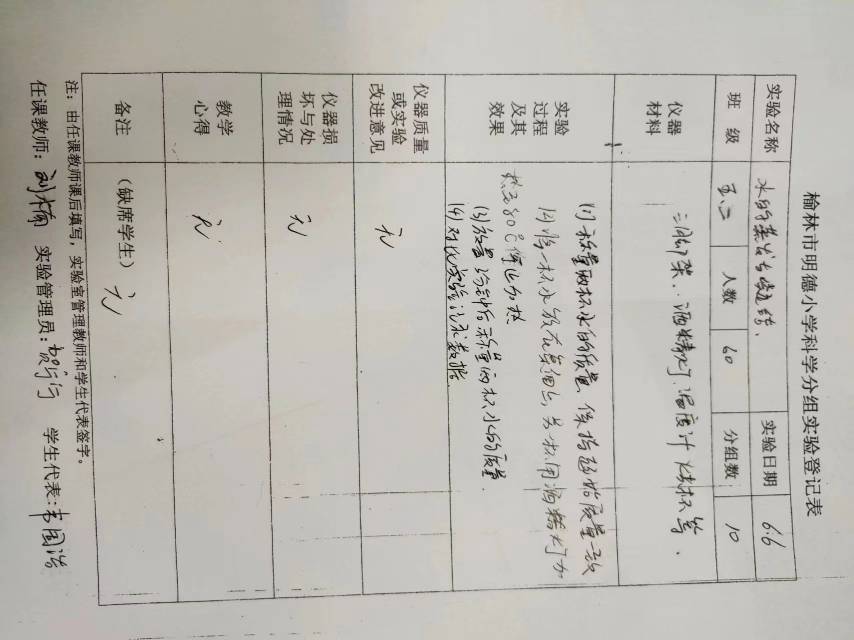 榆林市明德小学科学分组实验登记表
实验名称 水的蒸发与凝结. 实验日期 6.6
班 级 五.二 人数 60 分组数: 10
仪器
材料
三脚架、酒精灯、温度计 烧杯等.
实验
过程
及其
效果
(1) 称量两杯水的质量, 保持初始质量一致
(2) 将一杯水放在桌面上, 另一杯用酒精灯加
热至80℃停止加热
(3) 放置 分钟后称量两杯水的质量.
(4) 对比实验记录数据
仪器质量
或实验
改进意见
无
仪器损
坏与处
理情况
无
教学
心得
无
备注
(缺席学生) 无
注: 由任课教师课后填写, 实验室管理教师和学生代表签字。
任课教师: 刘 实验管理员: 贺 学生代表: 韦国浩